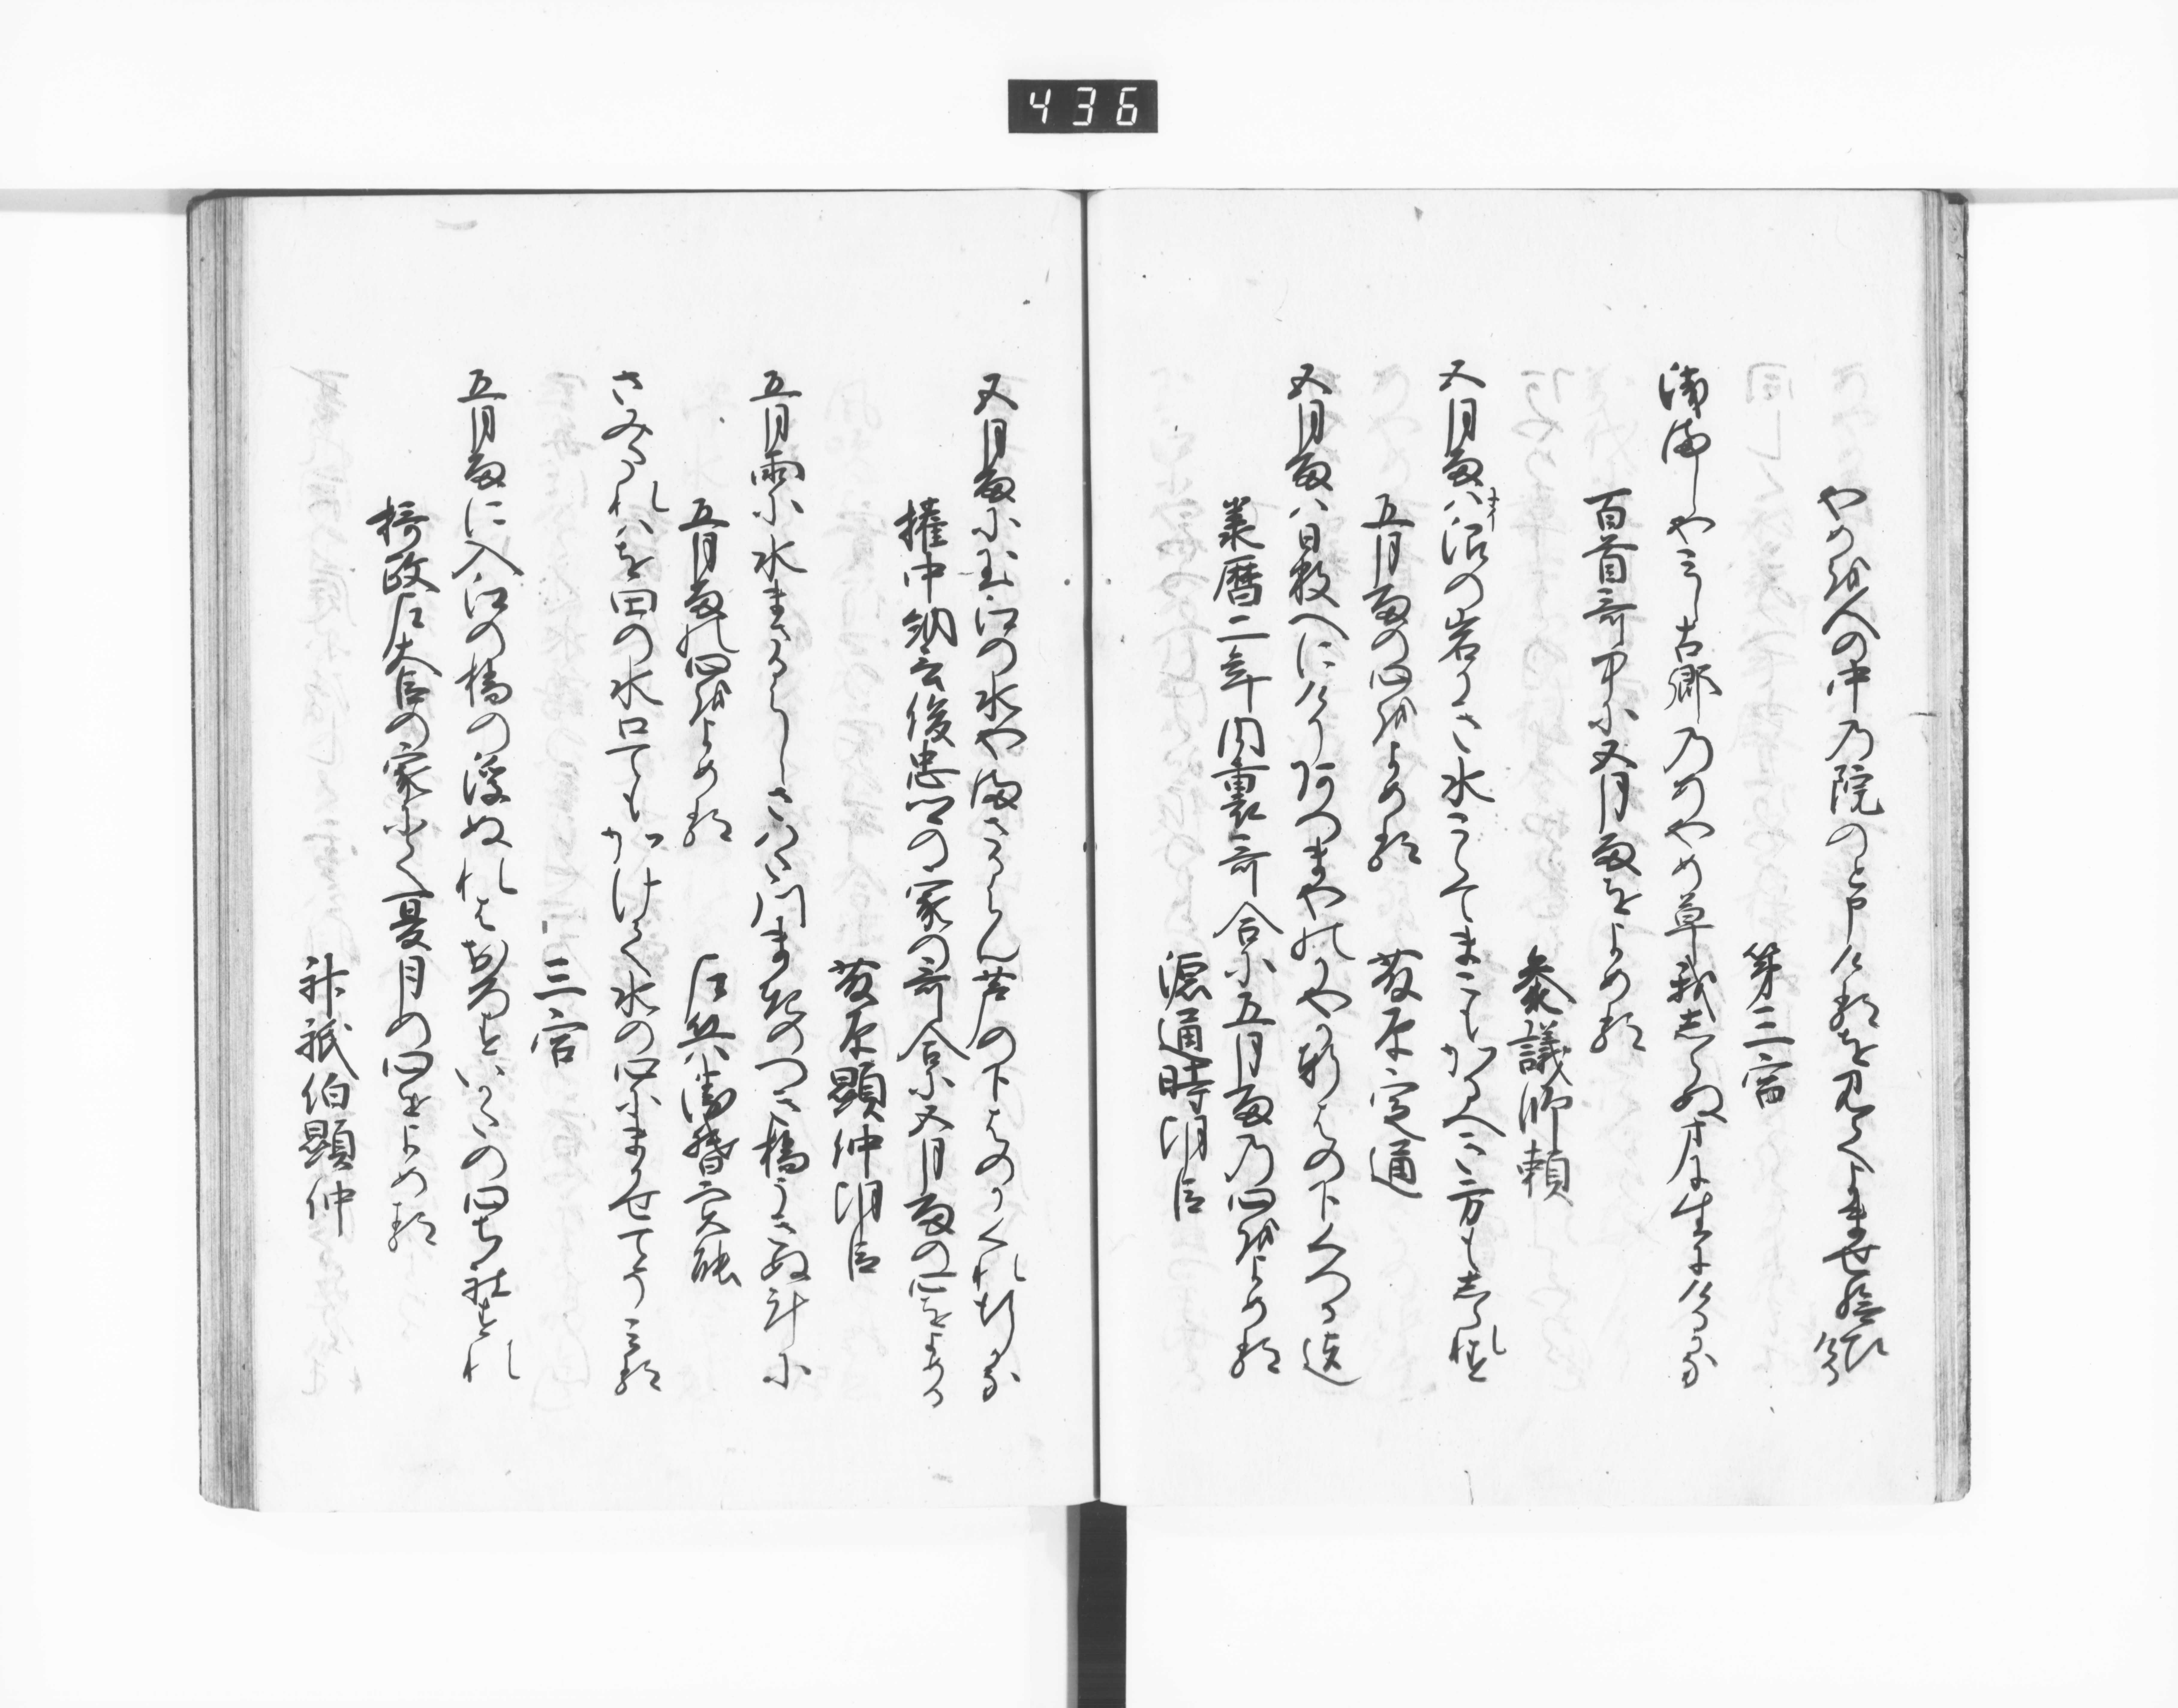 436
やめを人の中乃院のと申けるを見てよませ給ひける
第三宮
浅ましや見し古郷乃あやめ草我しらぬまに生にけるかな
百首哥中に五月雨をよめる
参議師頼
五月雨は沼の岩かき水こえてまこもかるへき方もしられす
五月雨の心をよめる
藤原定通
五月雨は日数へにけりあつまやのかやか軒はの下くつるまて
承暦二年内裏哥合に五月雨乃心をよめる
源道時朝臣
五月雨に玉江の水やまさるらん芦の下はのかくれ行かな
権中納言俊忠の家の哥合に五月雨の心をよめる
藤原顕仲朝臣
五月雨に水まさるらしさはた川まきのつき橋うきぬ計に
五月雨の心をよめる
左兵衛督実能
さみたれはを田の水口てもかけて水の心にまかせてそみる
三宮
五月雨に入江の橋の浮ぬれはおろすいかたの心ちこそすれ
摂政左大臣の家にて夏月の心をよめる
神祇伯顕仲